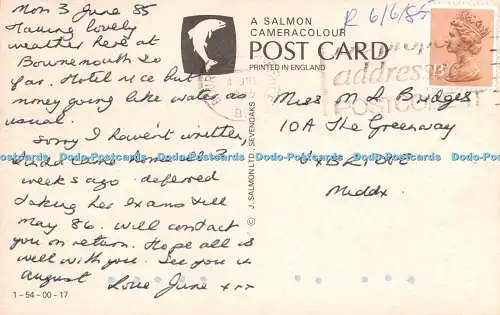 Mon 3 June 85
Having lovely
weather here at
Bournemouth so
far. Hotel nice but
money going like water as
usual.
Sorry I haven't written,
3
weeks ago. deferred
taking her exams till
May 86. Will contact
you on return. Hope all is
well with you. See you in
August
Love June xxx
1-54-00-17
© J. SALMON LTD., SEVENOAKS
A SALMON
CAMERACOLOUR
POST CARD
PRINTED IN ENGLAND
R 6/6/85
address
POSTCODE
13
Miss M L Bridges
10A The Greenway
UXBRIDGE
Middx
Dodo-Postcards Dodo-Postcards Dodo-Postcards Dodo-Postcards Dodo-Postcards Dodo-Postcards